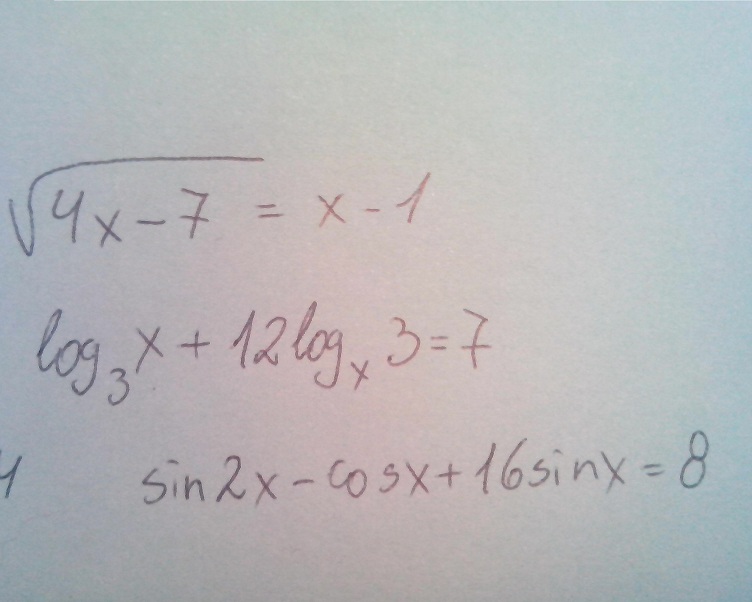 √(4x-7) = x-1
log₃x + 12logₓ3 = 7
4 sin2x - cosx + 16sinx = 8